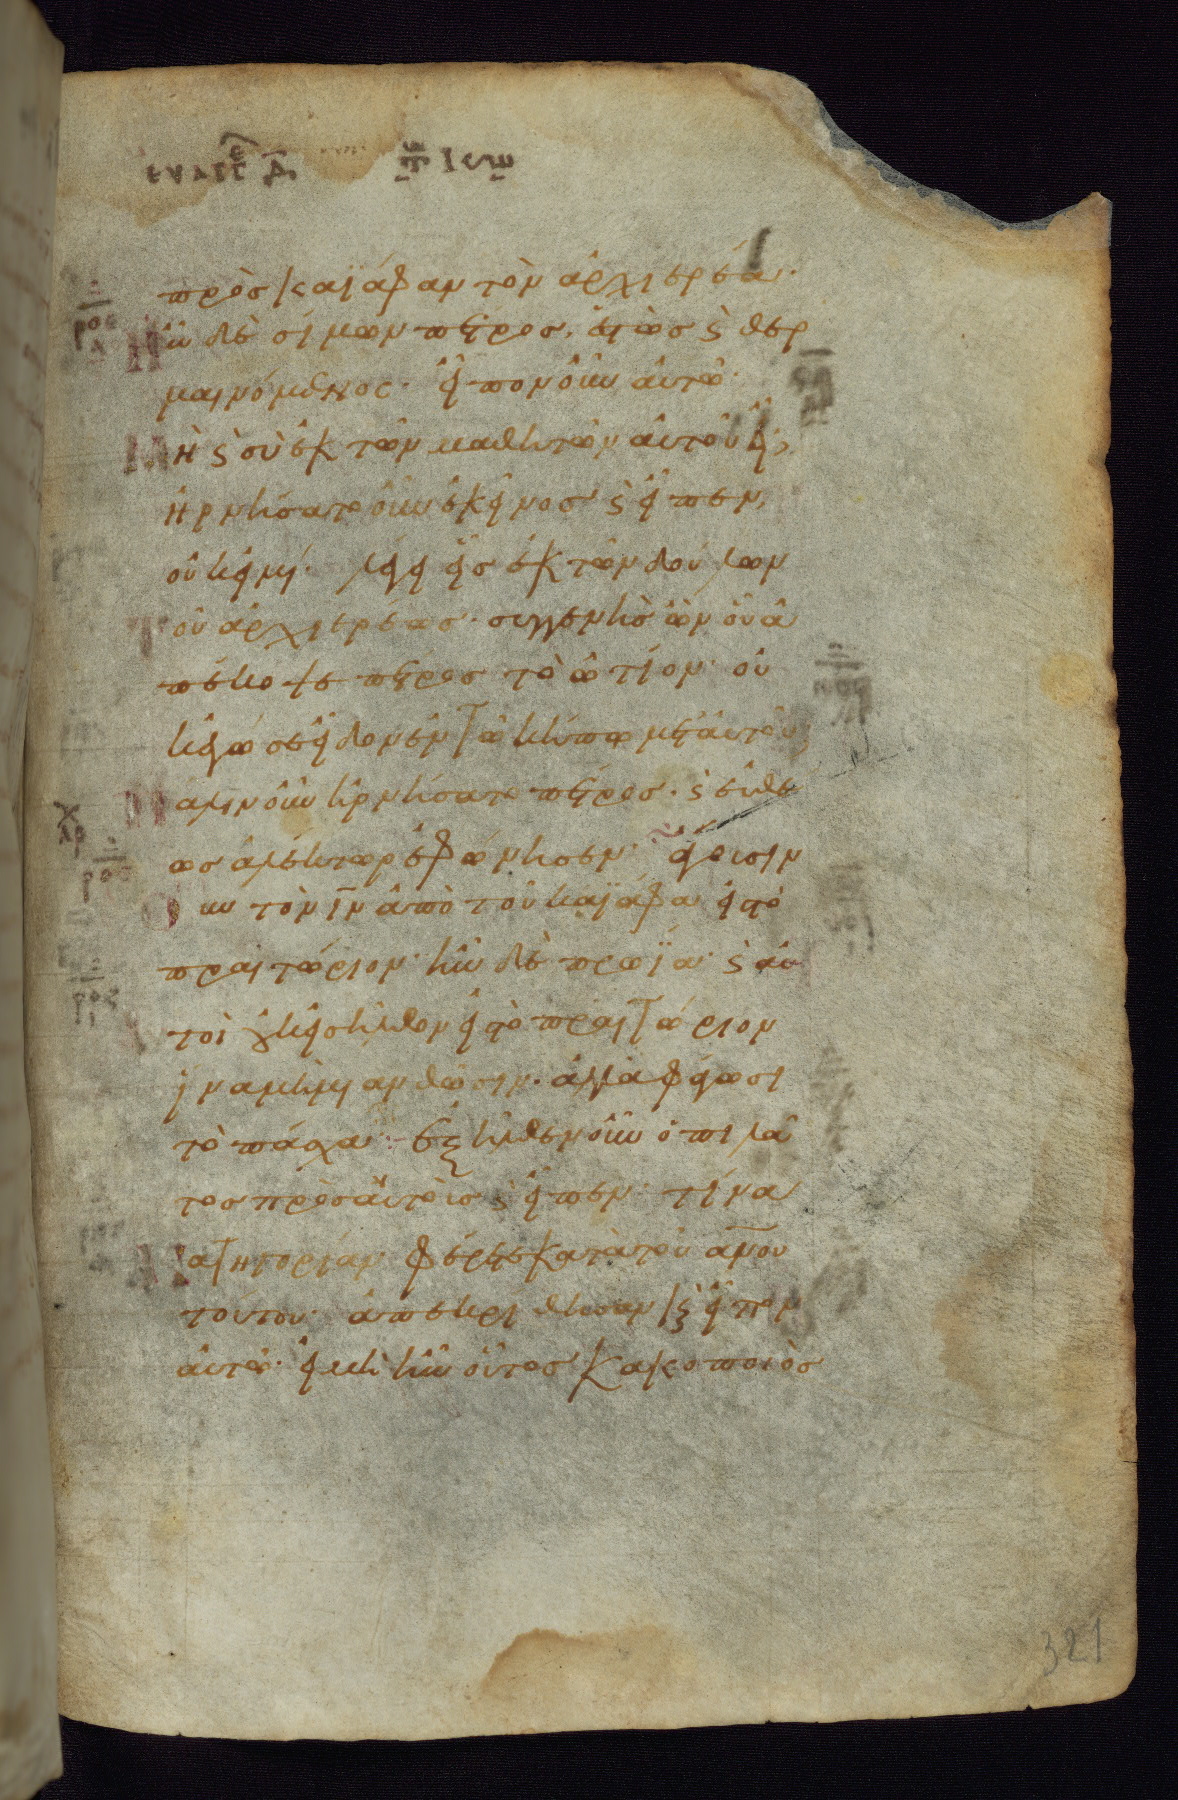 πρὸς καϊάφαν τὸν ἀρχιερέα·
Ἦν δὲ σίμων πέτρος, ἑστὼς ϗ θερ
μαινόμενος· εἶπον οὖν αὐτῶ·
μὴ ϗ σὺ ἐκ τῶν μαθητῶν αὐτοῦ εἶ;
ἠρνήσατο οὖν ἐκεῖνος ϗ εἶπεν,
οὐκ εἰμί· λέγει εἷς ἐκ τῶν δούλων
τοῦ ἀρχιερέως· συγγενὴς ὢν οὗ ἀ
πέκοψε πέτρος τὸ ὠτίον· οὐ
κἐγώ σε εἶδον ἐν τῶ κήπω μετ' αὐτοῦ;
Πάλιν οὖν ἠρνήσατο πέτρος· ϗ εὐθέ
ως ἀλέκτωρ ἐφώνησεν· ἄγουσιν
οὖν τὸν ιν ἀπὸ τοῦ καϊάφα εἰς τὸ
πραιτώριον· ἦν δὲ πρωΐα· ϗ αὐ
τοὶ οὐκ εἰσῆλθον εἰς τὸ πραιτώριον
ἵνα μὴ μιανθῶσιν· ἀλλὰ φάγωσι
τὸ πάσχα· ἐξῆλθεν οὖν ὁ πιλᾶ
τος πρὸς αὐτοὺς ϗ εἶπεν· τίνα
κατηγορίαν φέρετε κατὰ τοῦ ανου
τούτου· ἀπεκρίθησαν ϗ εἶπον
αὐτῶ· εἰ μὴ ἦν οὗτος κακοποιὸς
321